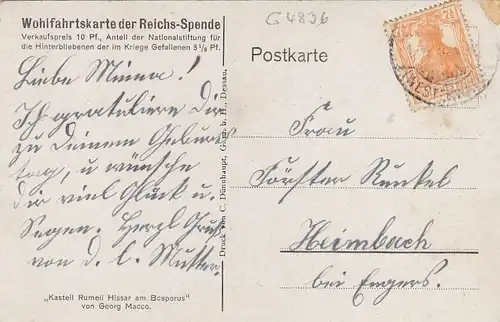 Wohlfahrtskarte der Reichs-Spende
Verkaufspreis 10 Pf., Anteil der Nationalstiftung für
die Hinterbliebenen der im Kriege Gefallenen 3⅓ Pf.
Liebe Minna!
Ich gratuliere Dir
zu Deinem Geburts
tag, u wünsche
Dir viel Glück u.
Segen. Herzl Gruß
von d. l. Mutter.
„Kastell Rumeli Hissar am Bosporus“
von Georg Macco.
Druck von C. Dünnhaupt, G. m. b. H., Dessau.
G 4836
Postkarte
7½
Frau
Förster Runkel
Heimbach
bei Engers.